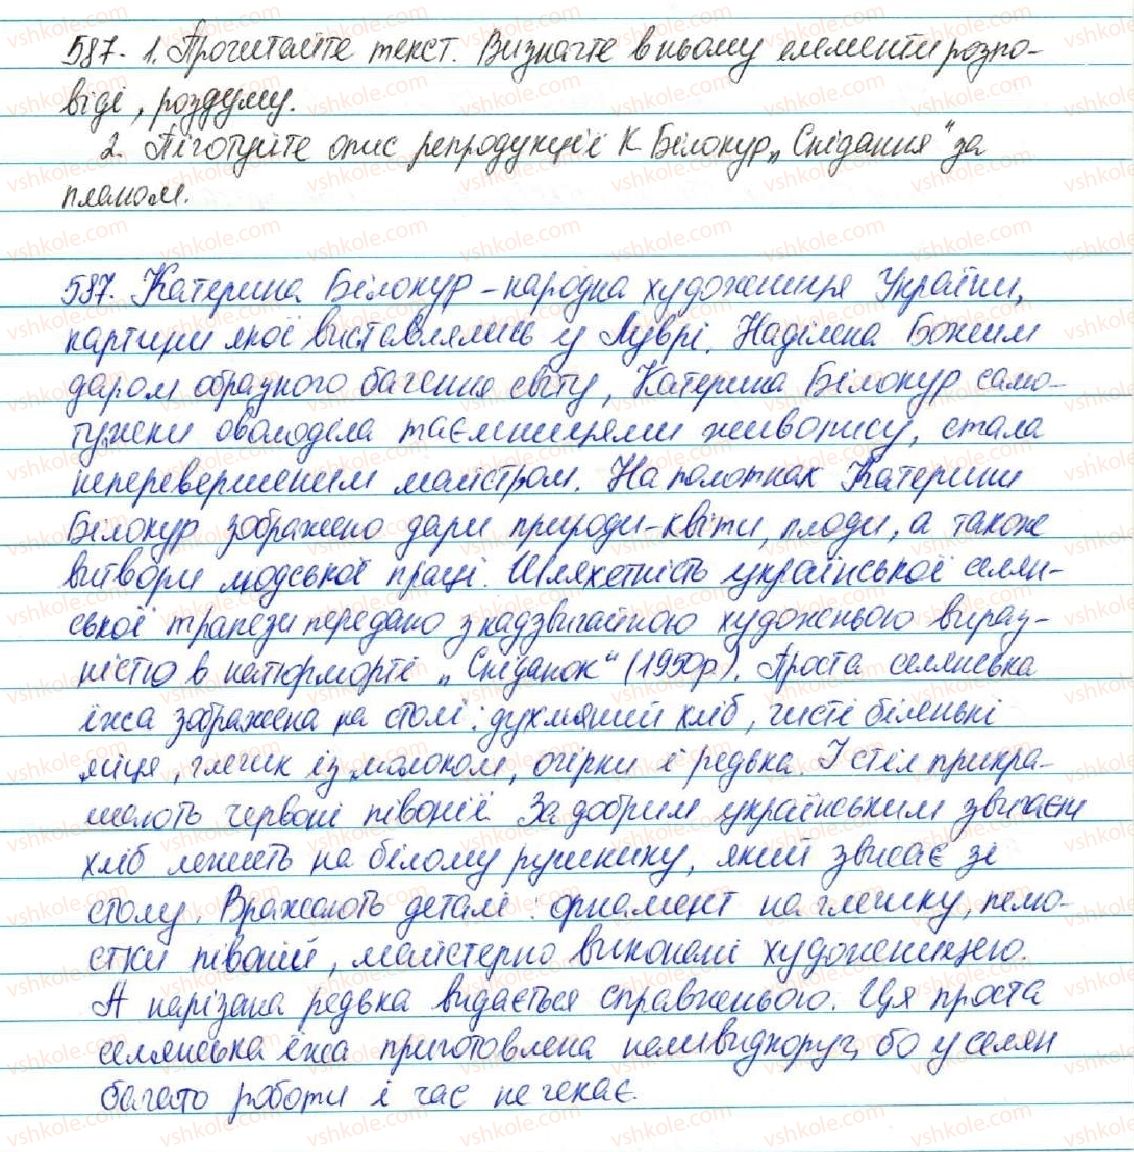 587. 1. Прочитайте текст. Визначте в ньому елементи розпо-
віді, роздуму.
2. Піготуйте опис репродукції К Білокур „Снідання" за
планом.
587. Катерина Білокур – народна художниця України,
картини якої виставлялись у Луврі. Наділена Божим
даром образного бачення світу, Катерина Білокур само-
тужки оволоділа таємницями живопису, стала
неперевершеним майстром. На полотнах Катерини
Білокур зображено дари природи – квіти, плоди, а також
витвори людської праці. Шляхетність української селян-
ської трапези передано з надзвичайною художньою вираз-
ністю в натюрморті „Сніданок" (1950р.). Проста селянська
їжа зображена на столі: духмяний хліб, чисті біленькі
яйця, глечик із молоком, огірки і редька. І стіл прикра-
шають червоні півонії. За добрим українським звичаєм
хліб лежить на білому рушнику, який звисає зі
столу. Вражають деталі: орнамент на глечику, пелю-
стки півоній, майстерно виконані художницею.
А нарізана редька видається справжньою. Ця проста
селянська їжа приготовлена нашвидкоруч, бо у селян
багато роботи і час не чекає.